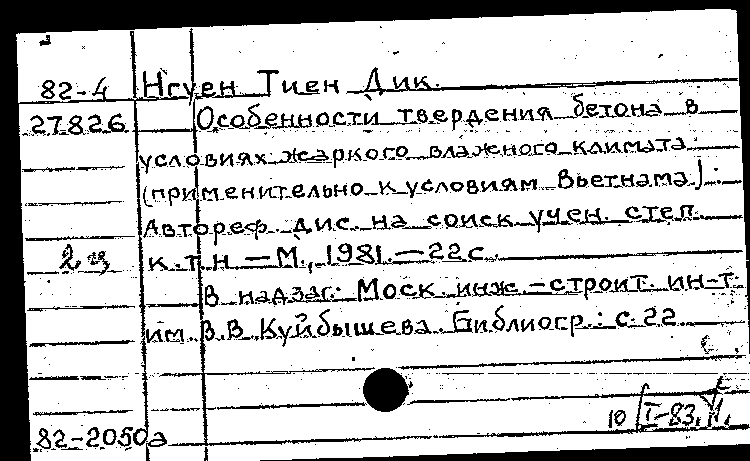 82-4 Нгуен Тиен Дик.
27826 Особенности твердения бетона в
условиях жаркого влажного климата
(применительно к условиям Вьетнама):
Автореф. дис. на соиск. учен. степ.
2 ц к.т.н — М., 1981. — 22 с.
В надзаг.: Моск. инж.-строит. ин-т
им. В.В. Куйбышева. Библиогр.: с. 22
10 I-83.
82-2050а